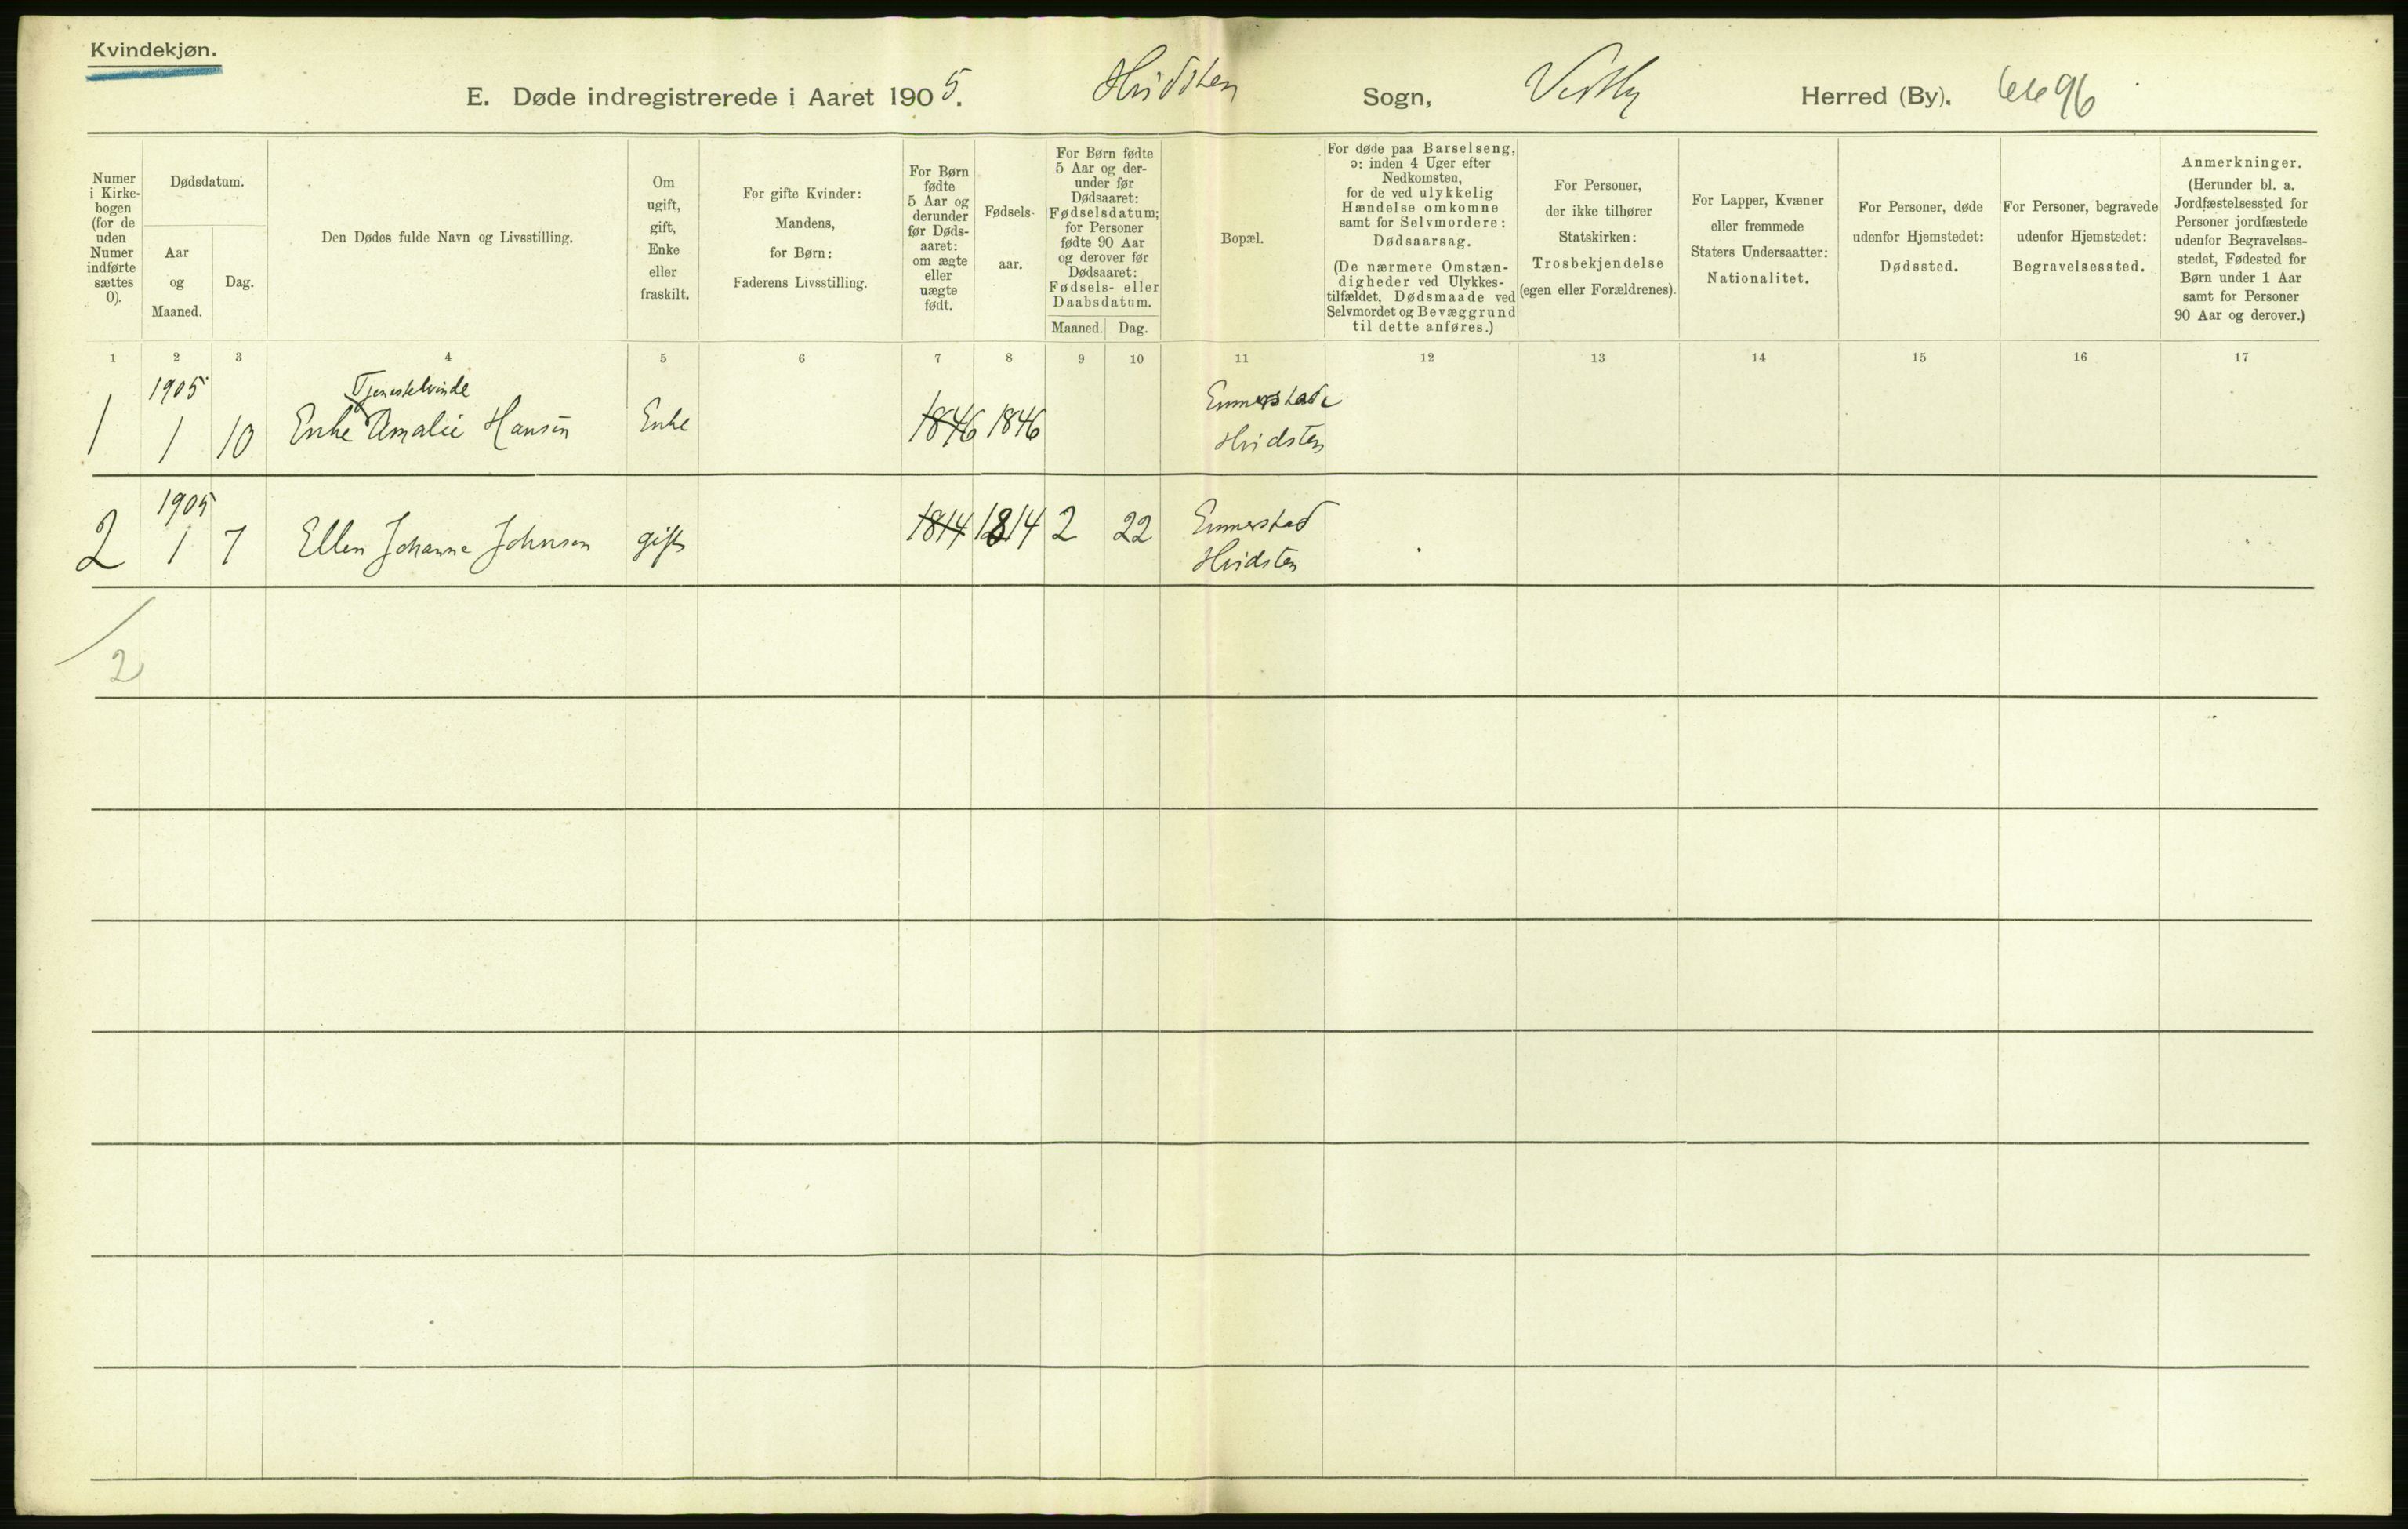 Kvindekjøn.
E. Døde indregistrerede i Aaret 1905. Hvidsten Sogn, Vestby Herred (By). 6696
Numer
i Kirke-
bogen
(for de
uden
Numer
indførte
sættes
0).
Dødsdatum.
Aar
og
Maaned.
Dag.
Den Dødes fulde Navn og Livsstilling.
Om
ugift,
gift,
Enke
eller
fraskilt.
For gifte Kvinder:
Mandens,
for Børn:
Faderens Livsstilling.
For Børn
fødte
5 Aar og
derunder
før Døds-
aaret:
om ægte
eller
uægte
født.
Fødsels-
aar.
For Børn fødte
5 Aar og der-
under før
Dødsaaret:
Fødselsdatum;
for Personer
fødte 90 Aar
og derover før
Dødsaaret:
Fødsels- eller
Daabsdatum.
Maaned. Dag.
Bopæl.
For døde paa Barselseng,
ɔ: inden 4 Uger efter
Nedkomsten,
for de ved ulykkelig
Hændelse omkomne
samt for Selvmordere:
Dødsaarsag.
(De nærmere Omstæn-
digheder ved Ulykkes-
tilfældet, Dødsmaade ved
Selvmordet og Bevæggrund
til dette anføres.)
For Personer,
der ikke tilhører
Statskirken:
Trosbekjendelse
(egen eller Forældrenes).
For Lapper, Kvæner
eller fremmede
Staters Undersaatter:
Nationalitet.
For Personer, døde
udenfor Hjemstedet:
Dødssted.
For Personer, begravede
udenfor Hjemstedet:
Begravelsessted.
Anmerkninger.
(Herunder bl. a.
Jordfæstelsessted for
Personer jordfæstede
udenfor Begravelses-
stedet, Fødested for
Børn under 1 Aar
samt for Personer
90 Aar og derover.)
1 2 3 4 5 6 7 8 9 10 11 12 13 14 15 16 17
1905 Tjenestekvinde Emmerstad
1 1 10 Enke Amalie Hansen Enke 1846 1846 Hvidsten
1905 Emmerstad
2 1 7 Ellen Johanne Johnsen gift 1814 1814 2 22 Hvidsten
2